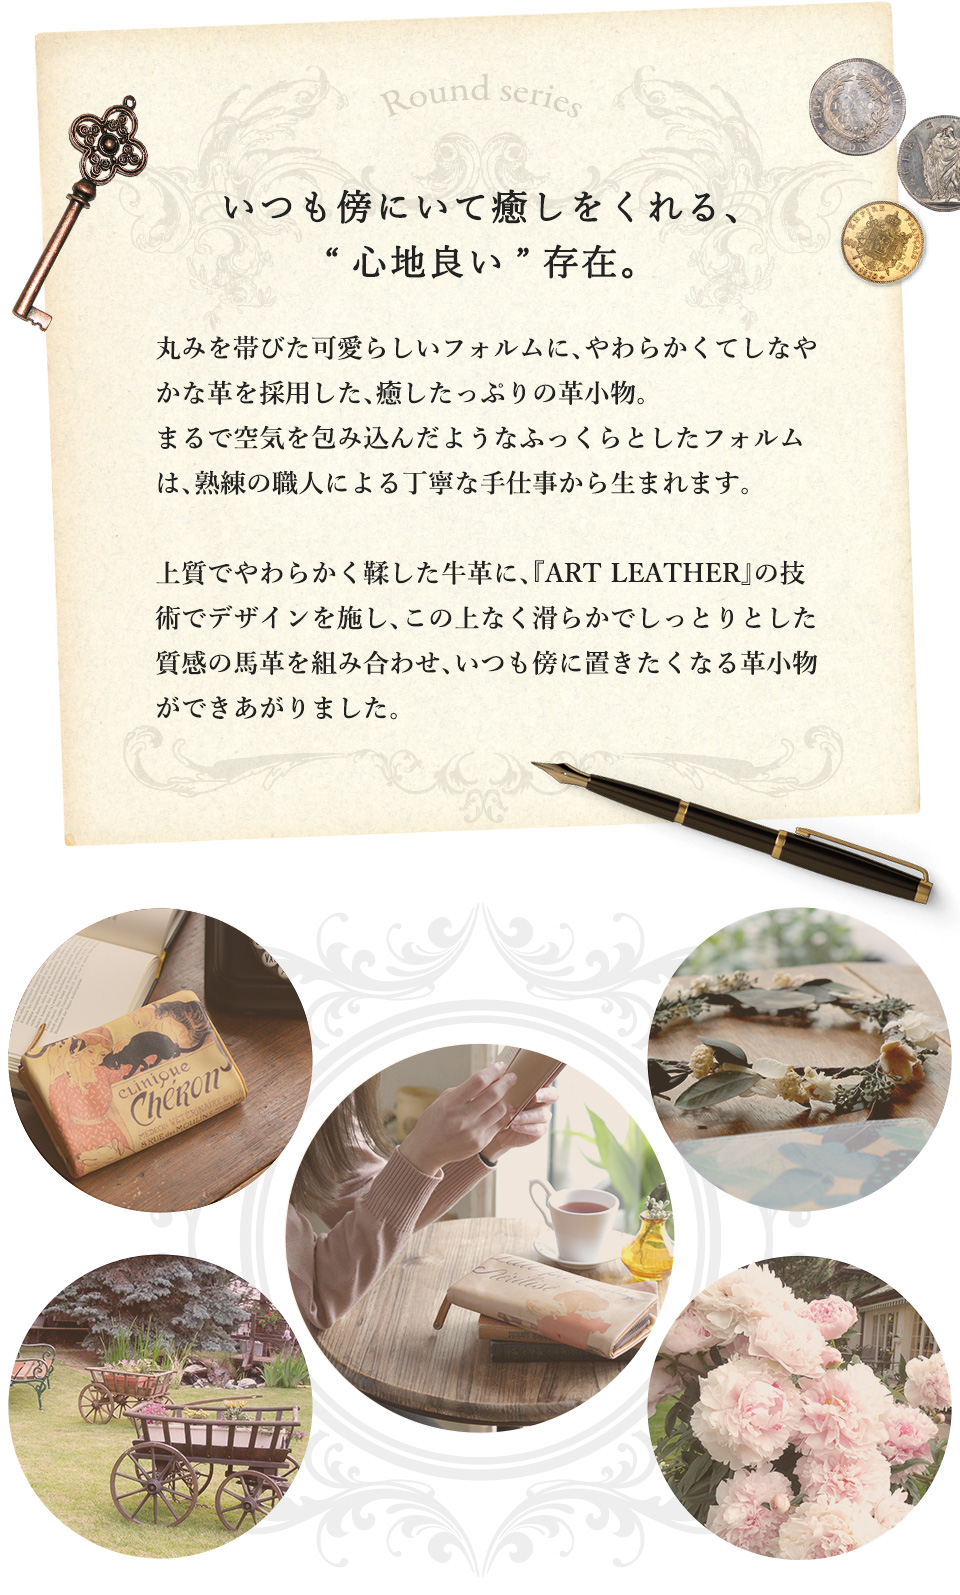 Round series
いつも傍にいて癒しをくれる、
“ 心地良い ” 存在。
丸みを帯びた可愛らしいフォルムに、やわらかくてしなや
かな革を採用した、癒したっぷりの革小物。
まるで空気を包み込んだようなふっくらとしたフォルム
は、熟練の職人による丁寧な手仕事から生まれます。
上質でやわらかく鞣した牛革に、『ART LEATHER』の技
術でデザインを施し、この上なく滑らかでしっとりとした
質感の馬革を組み合わせ、いつも傍に置きたくなる革小物
ができあがりました。
CLINIQUE
Chéron